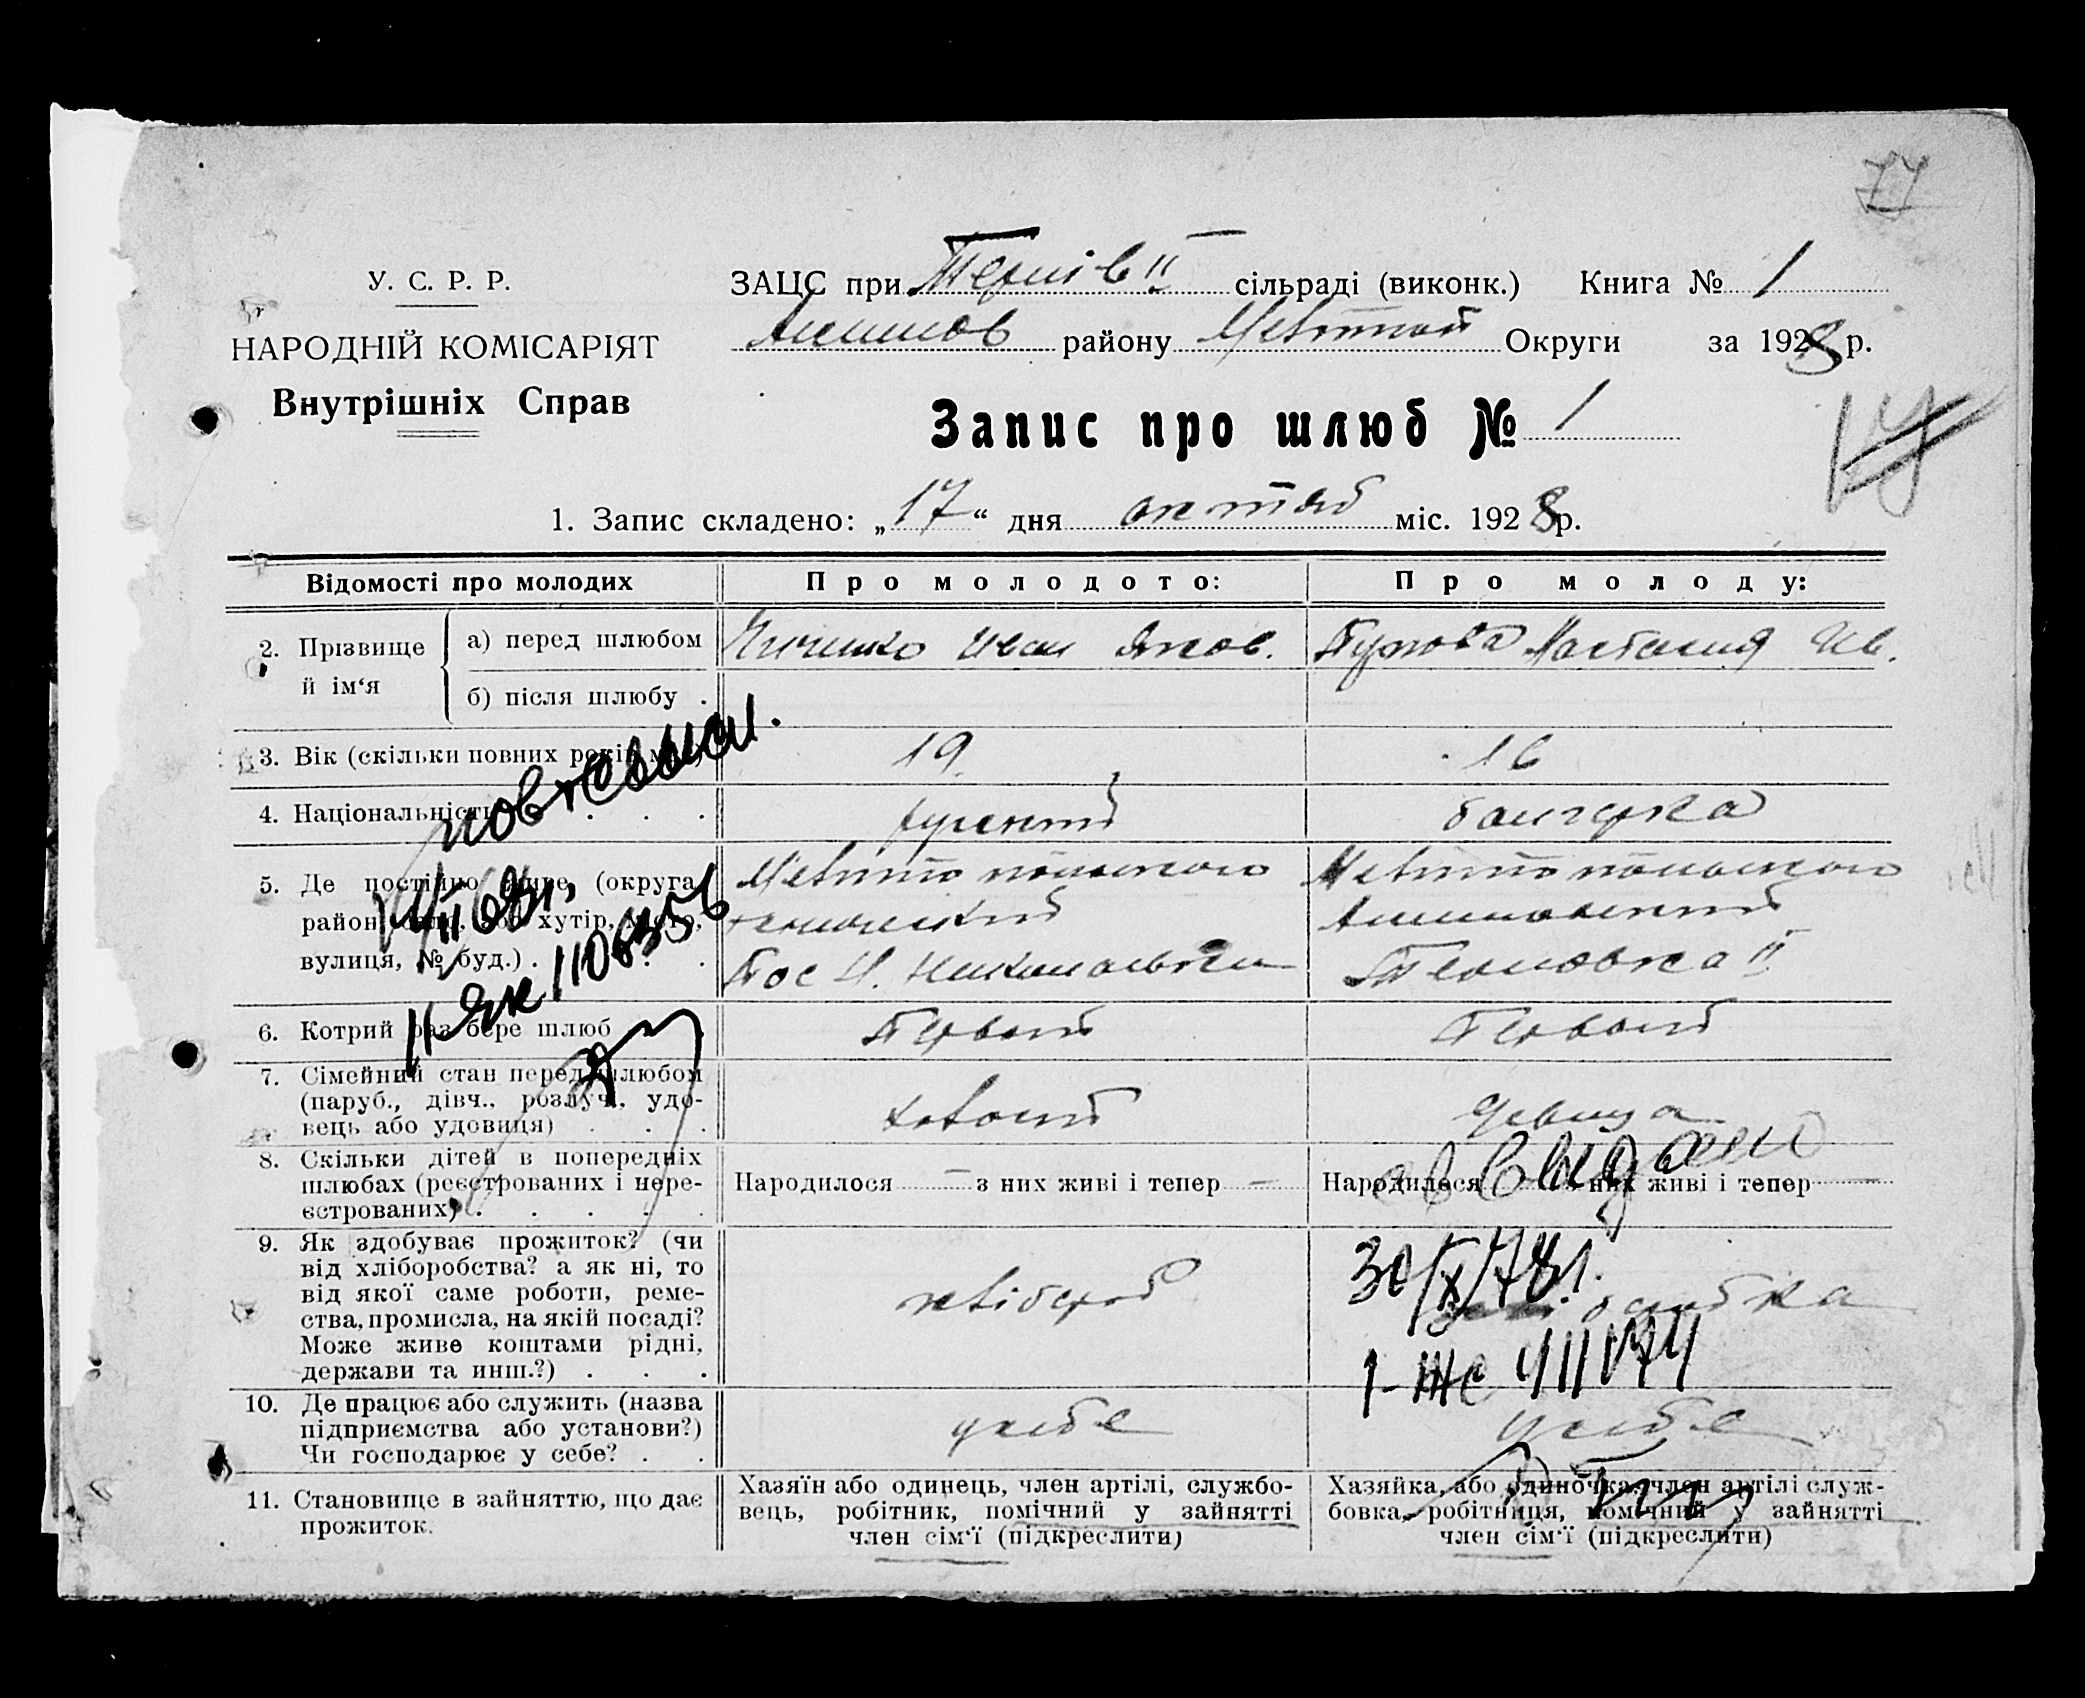 77
У. С. Р. Р.
НАРОДНІЙ КОМІСАРІЯТ
Внутрішніх Справ
ЗАЦС при Терпів II сільраді (виконк.) Книга № 1
Акимов району Мелітпол Округи за 1928 р.
Запис про шлюб № 1
1. Запис складено: „17“ дня октяб міс. 1928 р.
Відомості про молодих Про молодого: Про молоду:
2. Прізвище й ім‘я
а) перед шлюбом Иван Яков. Пужова Настасия Ив.
б) після шлюбу .
3. Вік (скільки повних років має) 19 16
4. Національність . . . руский болгарка
5. Де постійно живе, (округа, район, село, або хутір, місто, вулиця, № буд.) . . .
Мелитопольского Мелитопольского
Акимовский
Пос Н. Николаевка Терновка II
6. Котрий раз бере шлюб Первый Первый
7. Сімейний стан перед шлюбом
(паруб., дівч., розлуч., удо-
вець або удовиця) . . . холостй девица
8. Скільки дітей в попередніх
шлюбах (реєстрованих і нере-
єстрованих) . . . . .
Народилося — з них живі і тепер — Народилося з них живі і тепер —
9. Як здобуває прожиток? (чи
від хліборобства? а як ні, то
від якої саме роботи, реме-
ства, промисла, на якій посаді?
Може живе коштами рідні,
держави та инш.?) . . .
хлібороб
10. Де працює або служить (назва
підприємства або установи?)
Чи господарює у себе? . .
у себе у себе
11. Становище в зайняттю, що дає
прожиток.
Хазяїн або одинець, член артілі, службо-
вець, робітник, помічний у зайнятті
член сім‘ї (підкреслити)
Хазяйка, або одиночка, член артілі служ-
бовка, робітниця, помічний у зайнятті
член сім‘ї (підкреслити)
повторный
II-ЯК 1106356
30/X/78г.
I-ЖС 411174